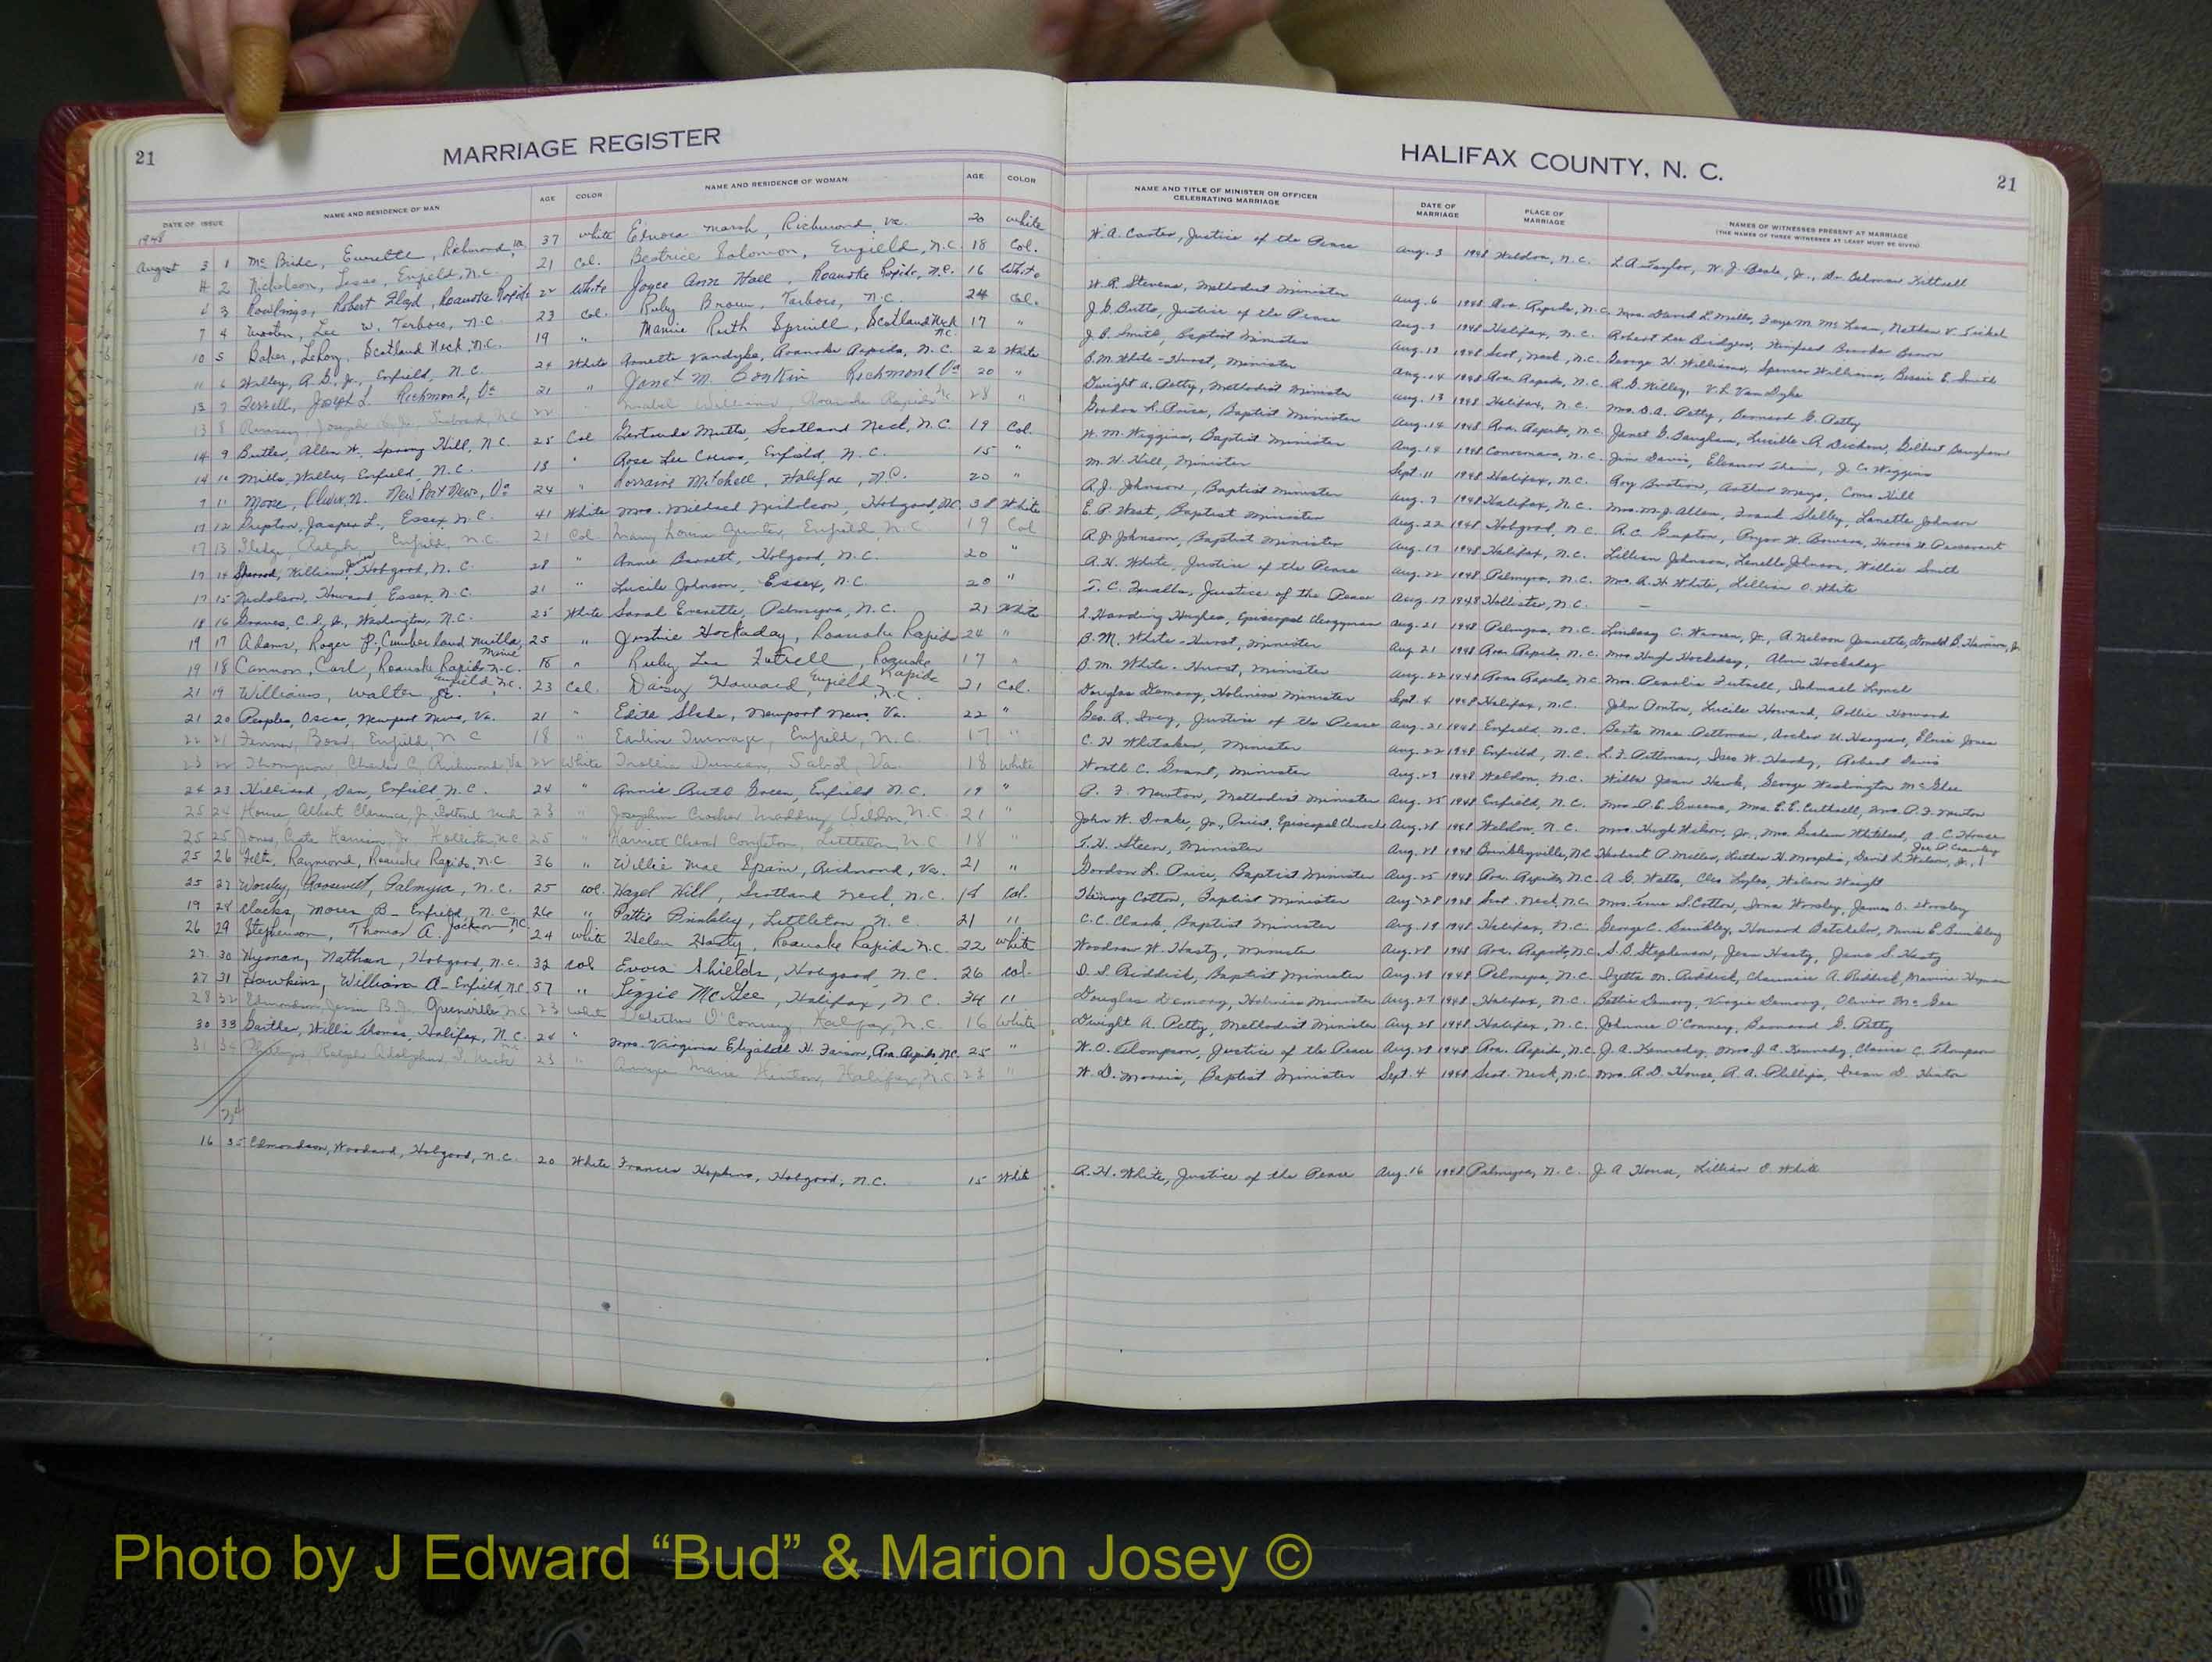 21
MARRIAGE REGISTER
DATE OF ISSUE NAME AND RESIDENCE OF MAN AGE COLOR NAME AND RESIDENCE OF WOMAN AGE COLOR
1948
August 3 1 Mc Bride, Everette, Richmond, Va. 37 white Elnora Marsh, Richmond, Va. 20 white
4 2 Nicholson, Enfield, N.C. 21 Col. Beatrice Solomon, Enfield, N.C. 18 Col.
3 Rawlings, Robert Floyd, Roanoke Rapids 22 White Joyce Ann Hall, Roanoke Rapids, N.C. 16 White
7 4 Lee W. Tarboro, N.C. 23 Col. Ruby Brown, Tarboro, N.C. 24 Col.
10 5 Baker, LeRoy, Scotland Neck, N.C. 19 " Mamie Ruth Spruill, Scotland Neck N.C. 17 "
11 6 Willey, R.B. Jr., Enfield, N.C. 24 White Annette Vandyke, Roanoke Rapids, N.C. 22 White
13 7 Terrell, Joseph L. Richmond, Va 21 " Janet M. Conkin Richmond Va 20 "
13 8 Joseph 22 " Mabel Williams Roanoke Rapids 28 "
14 9 Butler, Allen W. Spring Hill, N.C. 25 Col Gertrude Mutts, Scotland Neck, N.C. 19 Col.
14 10 Mills, Willie, Enfield, N.C. 18 " Rose Lee Enfield, N.C. 15 "
7 11 Moore, Oliver N. New Port News, Va 24 " Lorraine Mitchell, Halifax, N.C. 20 "
17 12 Gupton, Jasper L., Essex, N.C. 41 White Mrs. Mildred Nicholson, Hobgood, N.C. 38 White
17 13 Pledge, Ralph, Enfield, N.C. 21 Col. Mary Louise Gunter, Enfield, N.C. 19 Col
17 14 Sherrod, William, Hobgood, N.C. 28 " Annie Barrett, Hobgood, N.C. 20 "
17 15 Nicholson, Howard, Essex, N.C. 21 " Lucile Johnson, Essex, N.C. 20 "
18 16 Graves, C.S. Jr., Washington, N.C. 25 White Sarah Everette, Palmyra, N.C. 21 White
19 17 Adams, Roger P., Cumberland Maine 25 " Justine Hockaday, Roanoke Rapids 24 "
19 18 Cannon, Carl, Roanoke Rapids N.C. 18 " Ruby Lee Futrell, Roanoke Rapids 17 "
21 19 Williams, Walter Jr. Enfield, N.C. 23 Col. Daisy Howard, Enfield, N.C. 21 Col.
21 20 Peoples, Oscar, Newport News, Va. 21 " Edith Slade, Newport News, Va. 22 "
22 21 Enfield, N.C 18 " Earline Turnage, Enfield, N.C. 17 "
23 22 Thompson, Charles C. Richmond, Va 22 White Duncan, Va. 18 White
24 23 Hilliard, Dan, Enfield, N.C. 24 " Annie Ruth Green, Enfield, N.C. 19 "
25 24 House, Albert Clarence, Jr. Scotland Neck 23 " Josephine Crocker Weldon, N.C. 21 "
25 25 Jones, Harrison, Jr. Hollister, N.C. 25 " Harriett Congleton, Littleton, N.C 18 "
25 26 Felts, Raymond, Roanoke Rapids, N.C 36 " Willie Mae Spain, Richmond, Va. 21 "
25 27 Worsley, Roosevelt, Palmyra, N.C. 25 col. Hazel Hill, Scotland Neck, N.C. 18 Col.
19 28 Clacks, Moses B- Enfield, N.C. 26 " Pattie Brinkley, Littleton N.C 21 "
26 29 Stephenson, Thomas A. Jackson, N.C. 24 white Helen Hasty, Roanoke Rapids N.C. 22 white
27 30 Hyman, Nathan, Hobgood, N.C. 32 col Evora Shields, Hobgood, N.C. 26 col.
27 31 Hawkins, William A- Enfield, N.C 57 " Lizzie McGee, Halifax, N.C. 34 "
28 32 Edmondson, Greenville, N.C. 23 White O'Conney, Halifax, N.C. 16 White
30 33 Garther, Willie Thomas, Halifax, N.C. 24 " Mrs. Virginia Elizabeth H. Faison, Roa. Rapids, N.C. 25 "
31 34 Phillips Ralph Adolphus S. Neck 23 " Marie Hinton, Halifax, N.C. 23 "
16 35 Edmondson, Woodard, Hobgood, N.C. 20 White Frances Hopkins, Hobgood, N.C. 15 White
HALIFAX COUNTY, N. C.
21
NAME AND TITLE OF MINISTER OR OFFICER CELEBRATING MARRIAGE DATE OF MARRIAGE PLACE OF MARRIAGE NAMES OF WITNESSES PRESENT AT MARRIAGE
(THE NAMES OF THREE WITNESSES AT LEAST MUST BE GIVEN)
W. A. Carter, Justice of the Peace Aug. 3 1948 Weldon, N.C. L.A. Taylor, W. J. Beale, Jr., Dr. Coleman Kittrell
W. R. Stevens, Methodist Minister Aug. 6 1948 Roa. Rapids, N.C. Mrs. David L. Mills, Faye M. McLean, Nathan V.
J. C. Butts, Justice of the Peace Aug. 1948 Halifax, N.C. Robert Lee Bridgers, Winifred Brown
J. B. Smith, Baptist Minister Aug. 13 1948 Scot. Neck, N.C. George H. Williams, Spencer Williams, Bessie E. Smith
B. M. White-Hurst, Minister Aug. 14 1948 Roa. Rapids, N.C. R. B. Willey, V. L. Van Dyke
Dwight A. Petty, Methodist Minister Aug. 13 1948 Halifax, N.C. Mrs. D.A. Petty, Bernard G. Petty
Gordon L. Price, Baptist Minister Aug. 14 1948 Roa. Rapids, N.C. Janet G. Baugham, Lucille R. Dickens, Gilbert Baugham
W. M. Wiggins, Baptist Minister Aug. 14 1948 Conoconara, N.C. Jim Davis, Eleanor J. C. Wiggins
M. H. Hill, Minister Sept. 11 1948 Halifax, N.C. Roy Arthur Mays, Hill
R. J. Johnson, Baptist Minister Aug. 7 1948 Halifax, N.C. Mrs. M. J. Allen, Frank Shelley, Lanette Johnson
E. P. West, Baptist Minister Aug. 22 1948 Hobgood, N.C. R. C. Gupton, Pryor W. Bowers,
R. J. Johnson, Baptist Minister Aug. 17 1948 Halifax, N.C. Lillian Johnson, Lanelle Johnson, Willie Smith
R. H. White, Justice of the Peace Aug. 22 1948 Palmyra, N.C. Mrs. R. H. White, Lillian O. White
T. C. Justice of the Peace Aug. 17 1948 Hollister, N.C. —
I. Harding Hughes, Episcopal Clergyman Aug. 21 1948 Palmyra, N.C. Lindsay C. Warren, Jr., A. Nelson Jeannette, Donald B.
B. M. White-Hurst, Minister Aug. 21 1948 Roa. Rapids, N.C. Mrs. Hugh Hockaday, Alma Hockaday
B. M. White-Hurst, Minister Aug. 22 1948 Roa. Rapids, N.C. Mrs. Pearlie Futrell, Ishmael Lynch
Douglas Demory, Holiness Minister Sept. 4 1948 Halifax, N.C. John Ponton, Lucile Howard, Pollie Howard
Geo. R. Ivey, Justice of the Peace Aug. 21 1948 Enfield, N.C. Berta Mae Pittman, Archer U. Hargrave, Elsie Jones
C. H. Whitaker, Minister Aug. 22 1948 Enfield, N.C. L. F. Pittman, W. Hardy, Robert Davis
Worth C. Grant, Minister Aug. 23 1948 Weldon, N.C. Willa Jean Hawk, George Washington McGhee
P. F. Newton, Methodist Minister Aug. 25 1948 Enfield, N.C. Mrs. P. E. Greene, Mrs. E. E. Cuthrell, Mrs. P. F. Newton
John W. Drake, Jr., Priest, Episcopal Church Aug. 28 1948 Weldon, N.C. Mrs. Hugh Wilson, Jr., Mrs. Graham Whitehead, A. C. House
T. H. Steen, Minister Aug. 28 1948 Brinkleyville, N.C. Herbert P. Miller, Luther H. Morphis, David L. Wilson, Jr.,
Gordon L. Price, Baptist Minister Aug. 25 1948 Roa. Rapids, N.C. A. G. Watts, Cleo Lyles, Wilson Wright
Henry Cotton, Baptist Minister Aug. 28 1948 Scot. Neck, N.C. Mrs. S. Cotton, Iona Worsley, James O. Worsley
C. C. Clark, Baptist Minister Aug. 19 1948 Halifax, N.C. George C. Brinkley, Howard Batchelor, E. Brinkley
Woodrow W. Hasty, Minister Aug. 28 1948 Roa. Rapids, N.C. S. B. Stephenson, Jean Hasty, Jane S. Hasty
D. S. Riddick, Baptist Minister Aug. 28 1948 Palmyra, N.C. Izetta M. Riddick, A. Riddick, Mamie Hyman
Douglas Demory, Holiness Minister Aug. 27 1948 Halifax, N.C. Bettie Demory, Virgie Demory, Oliver McGee
Dwight A. Petty, Methodist Minister Aug. 28 1948 Halifax, N.C. Johnnie O'Conney, Bernard G. Petty
W. O. Thompson, Justice of the Peace Aug. 28 1948 Roa. Rapids, N.C. J. A. Kennedy, Mrs. J. A. Kennedy, Claire C. Thompson
W. D. Morris, Baptist Minister Sept. 4 1948 Scot. Neck, N.C. Mrs. R. D. House, R. A. Phillips, D. Hinton
R. H. White, Justice of the Peace Aug. 16 1948 Palmyra, N.C. J. A. House, Lillian O. White
Photo by J Edward “Bud” & Marion Josey ©